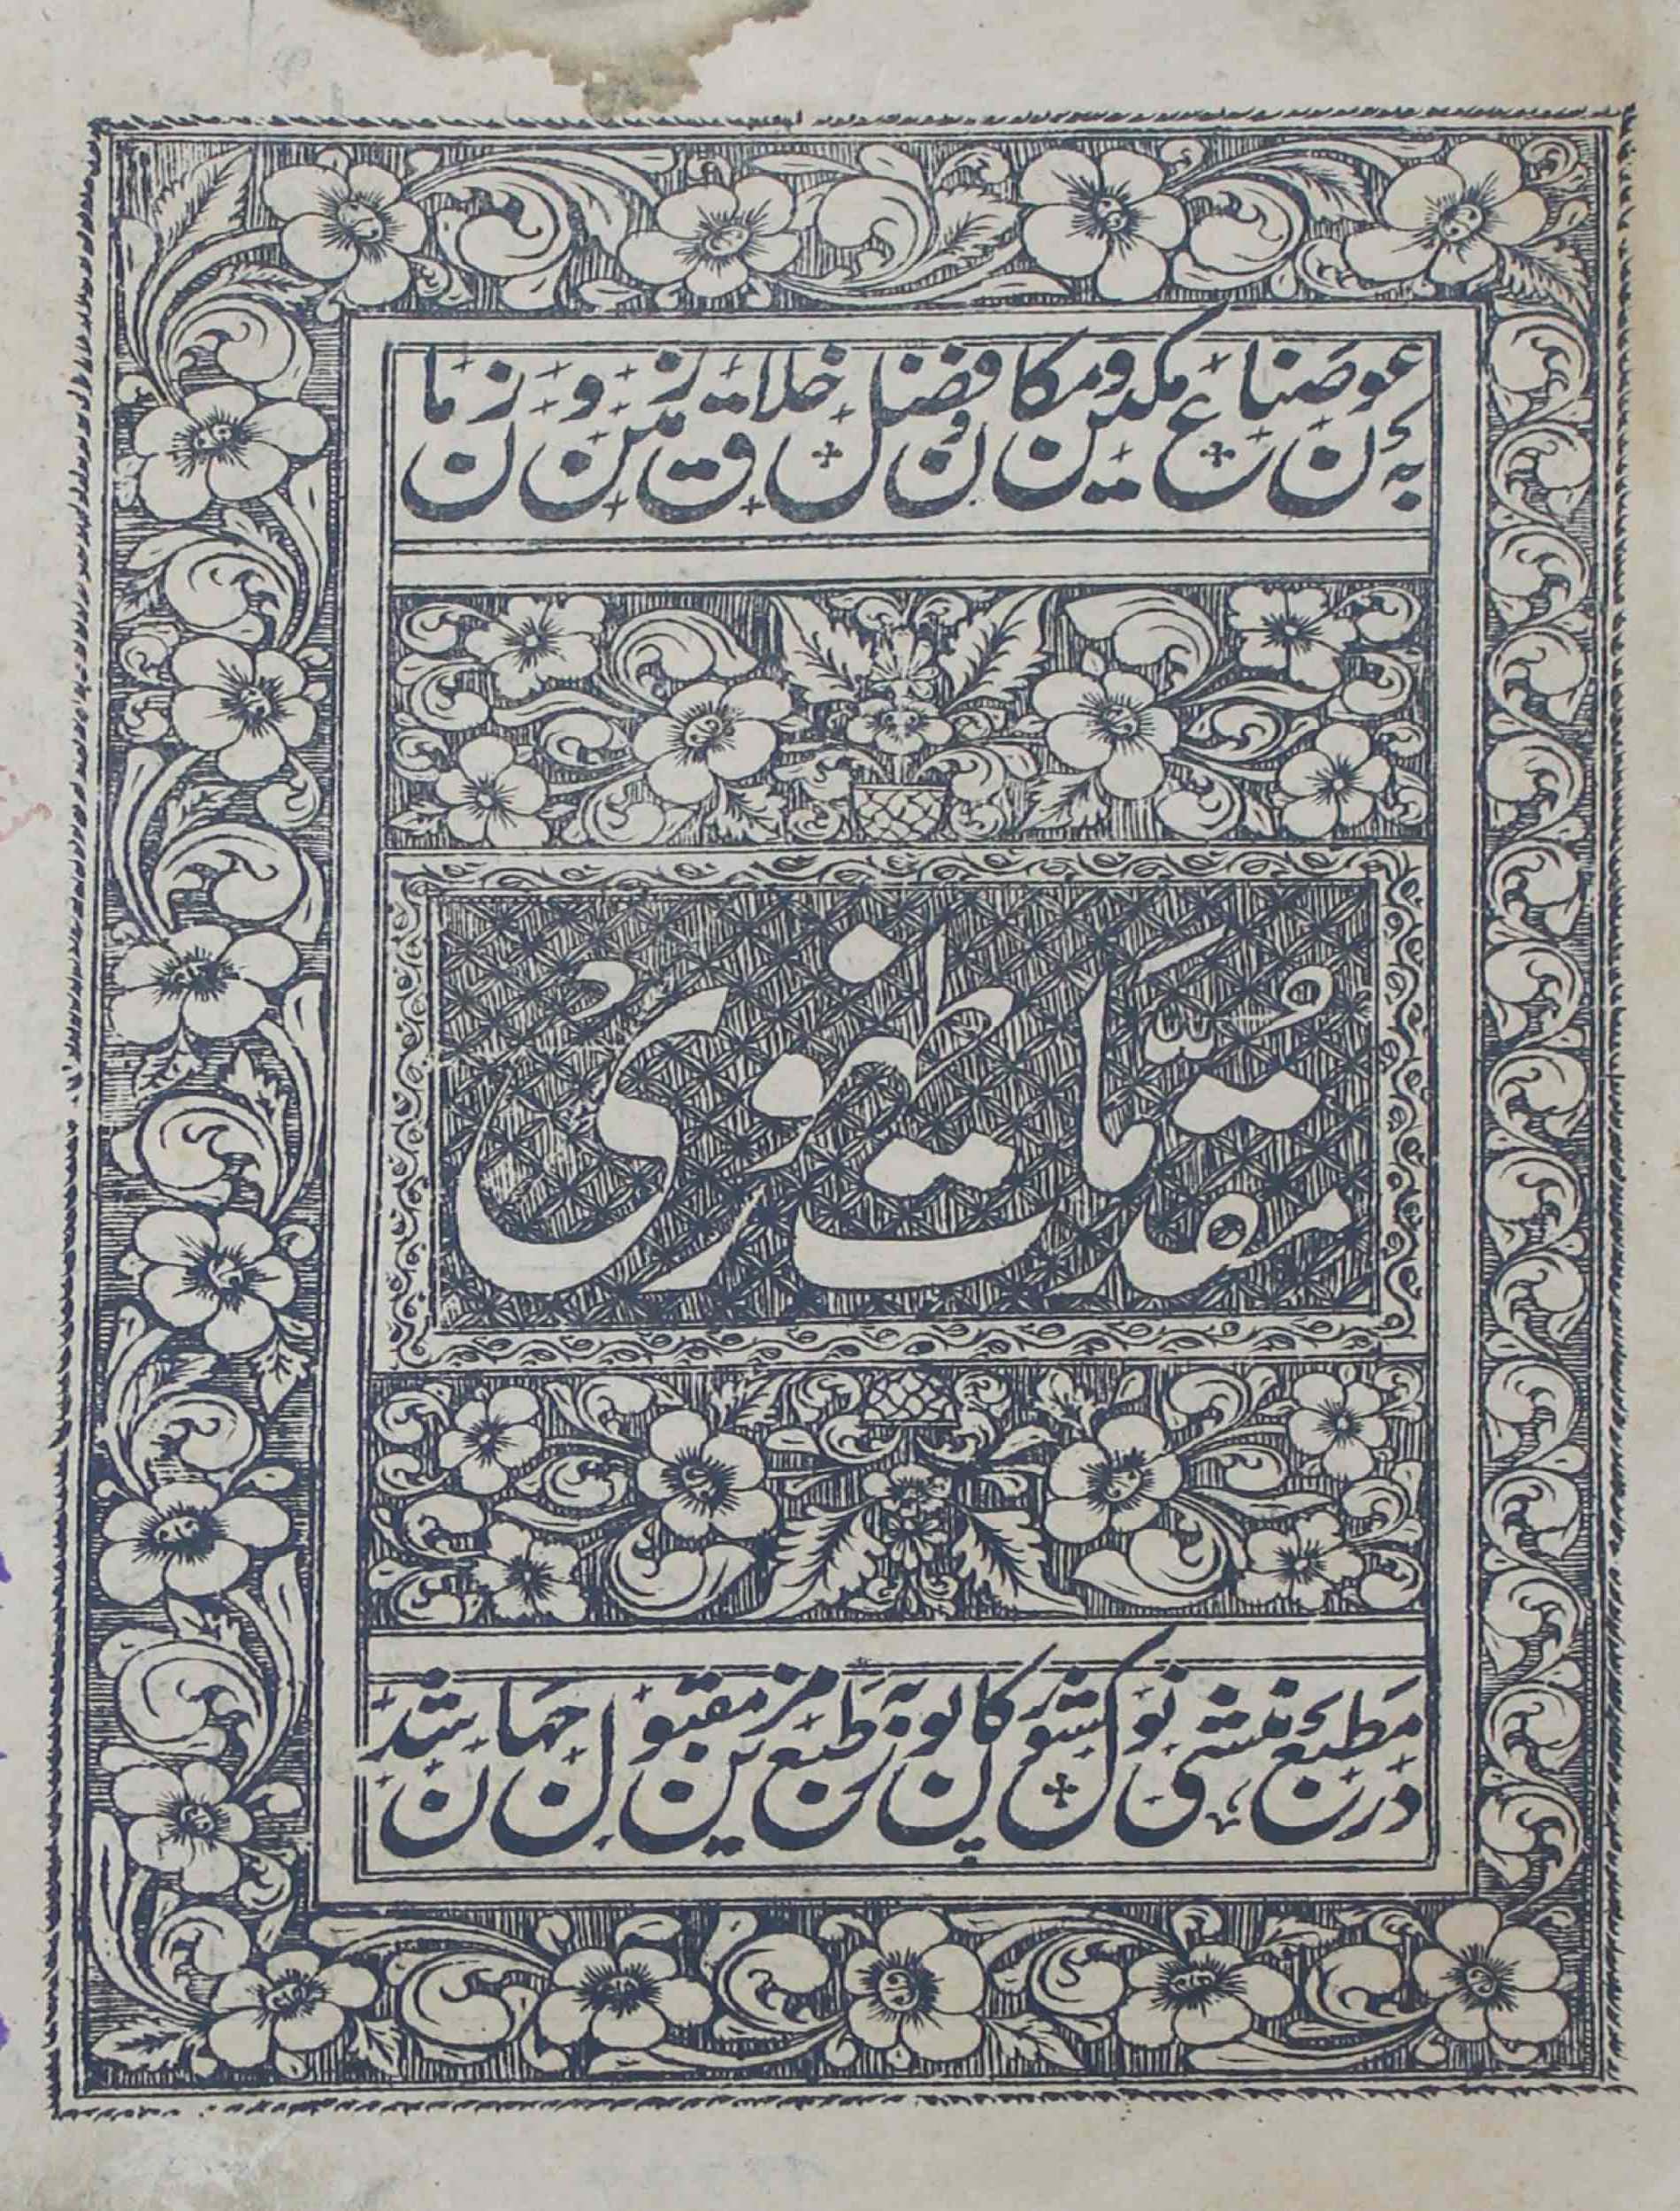 بعون صناع مکین و مکان و فضل خلاق زمین و زمان
مقدمات ظهوری
در مطبع منشی نولکشور کانپور بزیور طبع مزین مقبول جهان شد